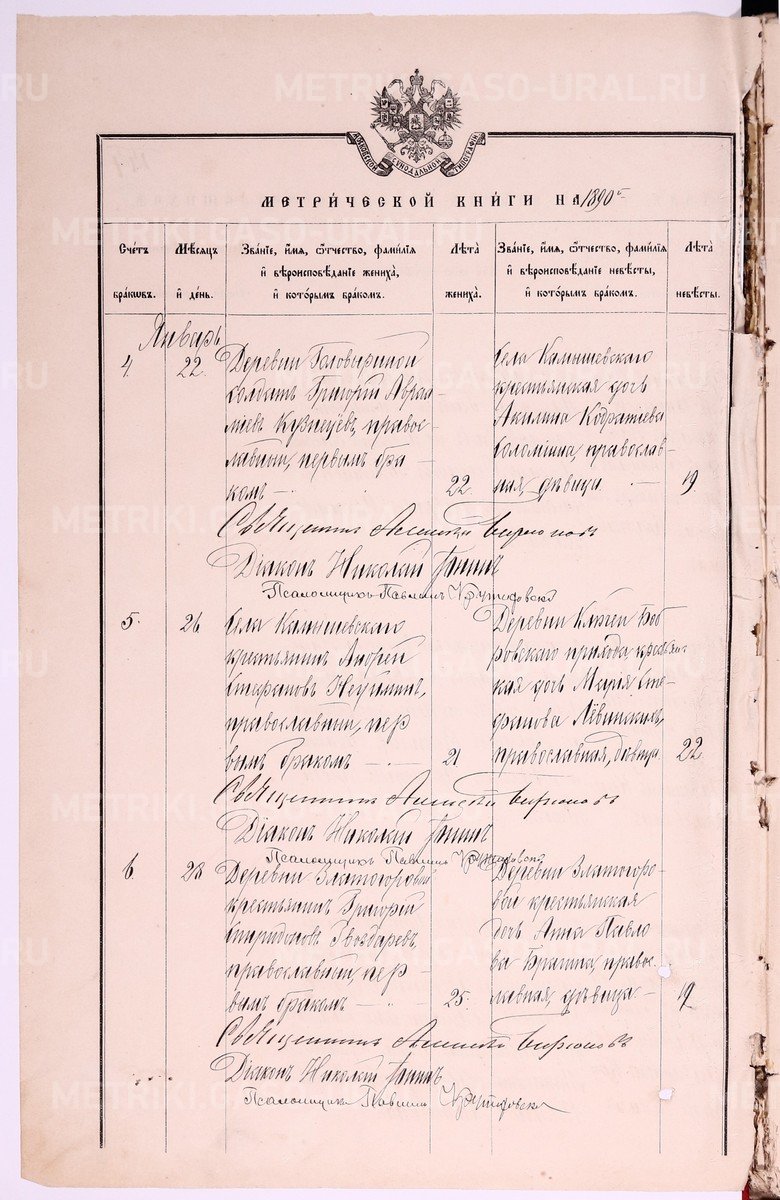 METRIKI.GASO-URAL.RU
МОСКОВСКОЙ СУНОДАЛЬНОЙ ТИПОГРАФІИ
МЕТРИ́ЧЕСКОЙ КНИ́ГИ НА 1890 г.
Сче́тъ бра́кѡвъ.
Мѣ́сяцъ и҆ де́нь.
Зва́нїе, и҆́мѧ, ѻ҆́тчество, фами́лїѧ и҆ вѣроисповѣ́данїе жениха̀, и҆ кото́рымъ бра́комъ.
Лѣ́та жениха̀.
Зва́нїе, и҆́мѧ, ѻ҆́тчество, фами́лїѧ и҆ вѣроисповѣ́данїе невѣ́сты, и҆ кото́рымъ бра́комъ.
Лѣ́та невѣ́сты.
Январь
4. 22.
Деревни Головыриной
солдатъ Григорій Авра-
міевъ Кузнецевъ, правос-
лавный, первымъ бра-
комъ —
22
Села Камышевскаго
крестьянская дочь
Акилина Кодратіева
Соломіина, православ-
ная, дѣвица. —
19
Священникъ Алексѣй Бирюковъ
Діаконъ Николай Ганинъ
Псаломщикъ Павлинъ
5. 26
Села Камышевскаго
крестьянинъ Андрей
Стефановъ Неуйминъ,
православный, пер
вымъ бракомъ —
21
Деревни Ключей Боб
ровскаго прихода крестьянс
кая дочь Марія Сте-
фанова Лёвинскихъ,
православная, дѣвица.
22
Священникъ Алексѣй Бирюковъ
Діаконъ Николай Ганинъ
Псаломщикъ Павлинъ
6. 28
Деревни Златогоровой
крестьянинъ Григорій
Спиридоновъ Гвоздаревъ,
православный, пер
вымъ бракомъ —
25.
Деревни Златогоро-
вой крестьянская
дочь Анна Павло
ва Брагина, правос-
лавная, дѣвица. —
19
Священникъ Алексѣй Бирюковъ
Діаконъ Николай Ганинъ
Псаломщикъ Павлинъ